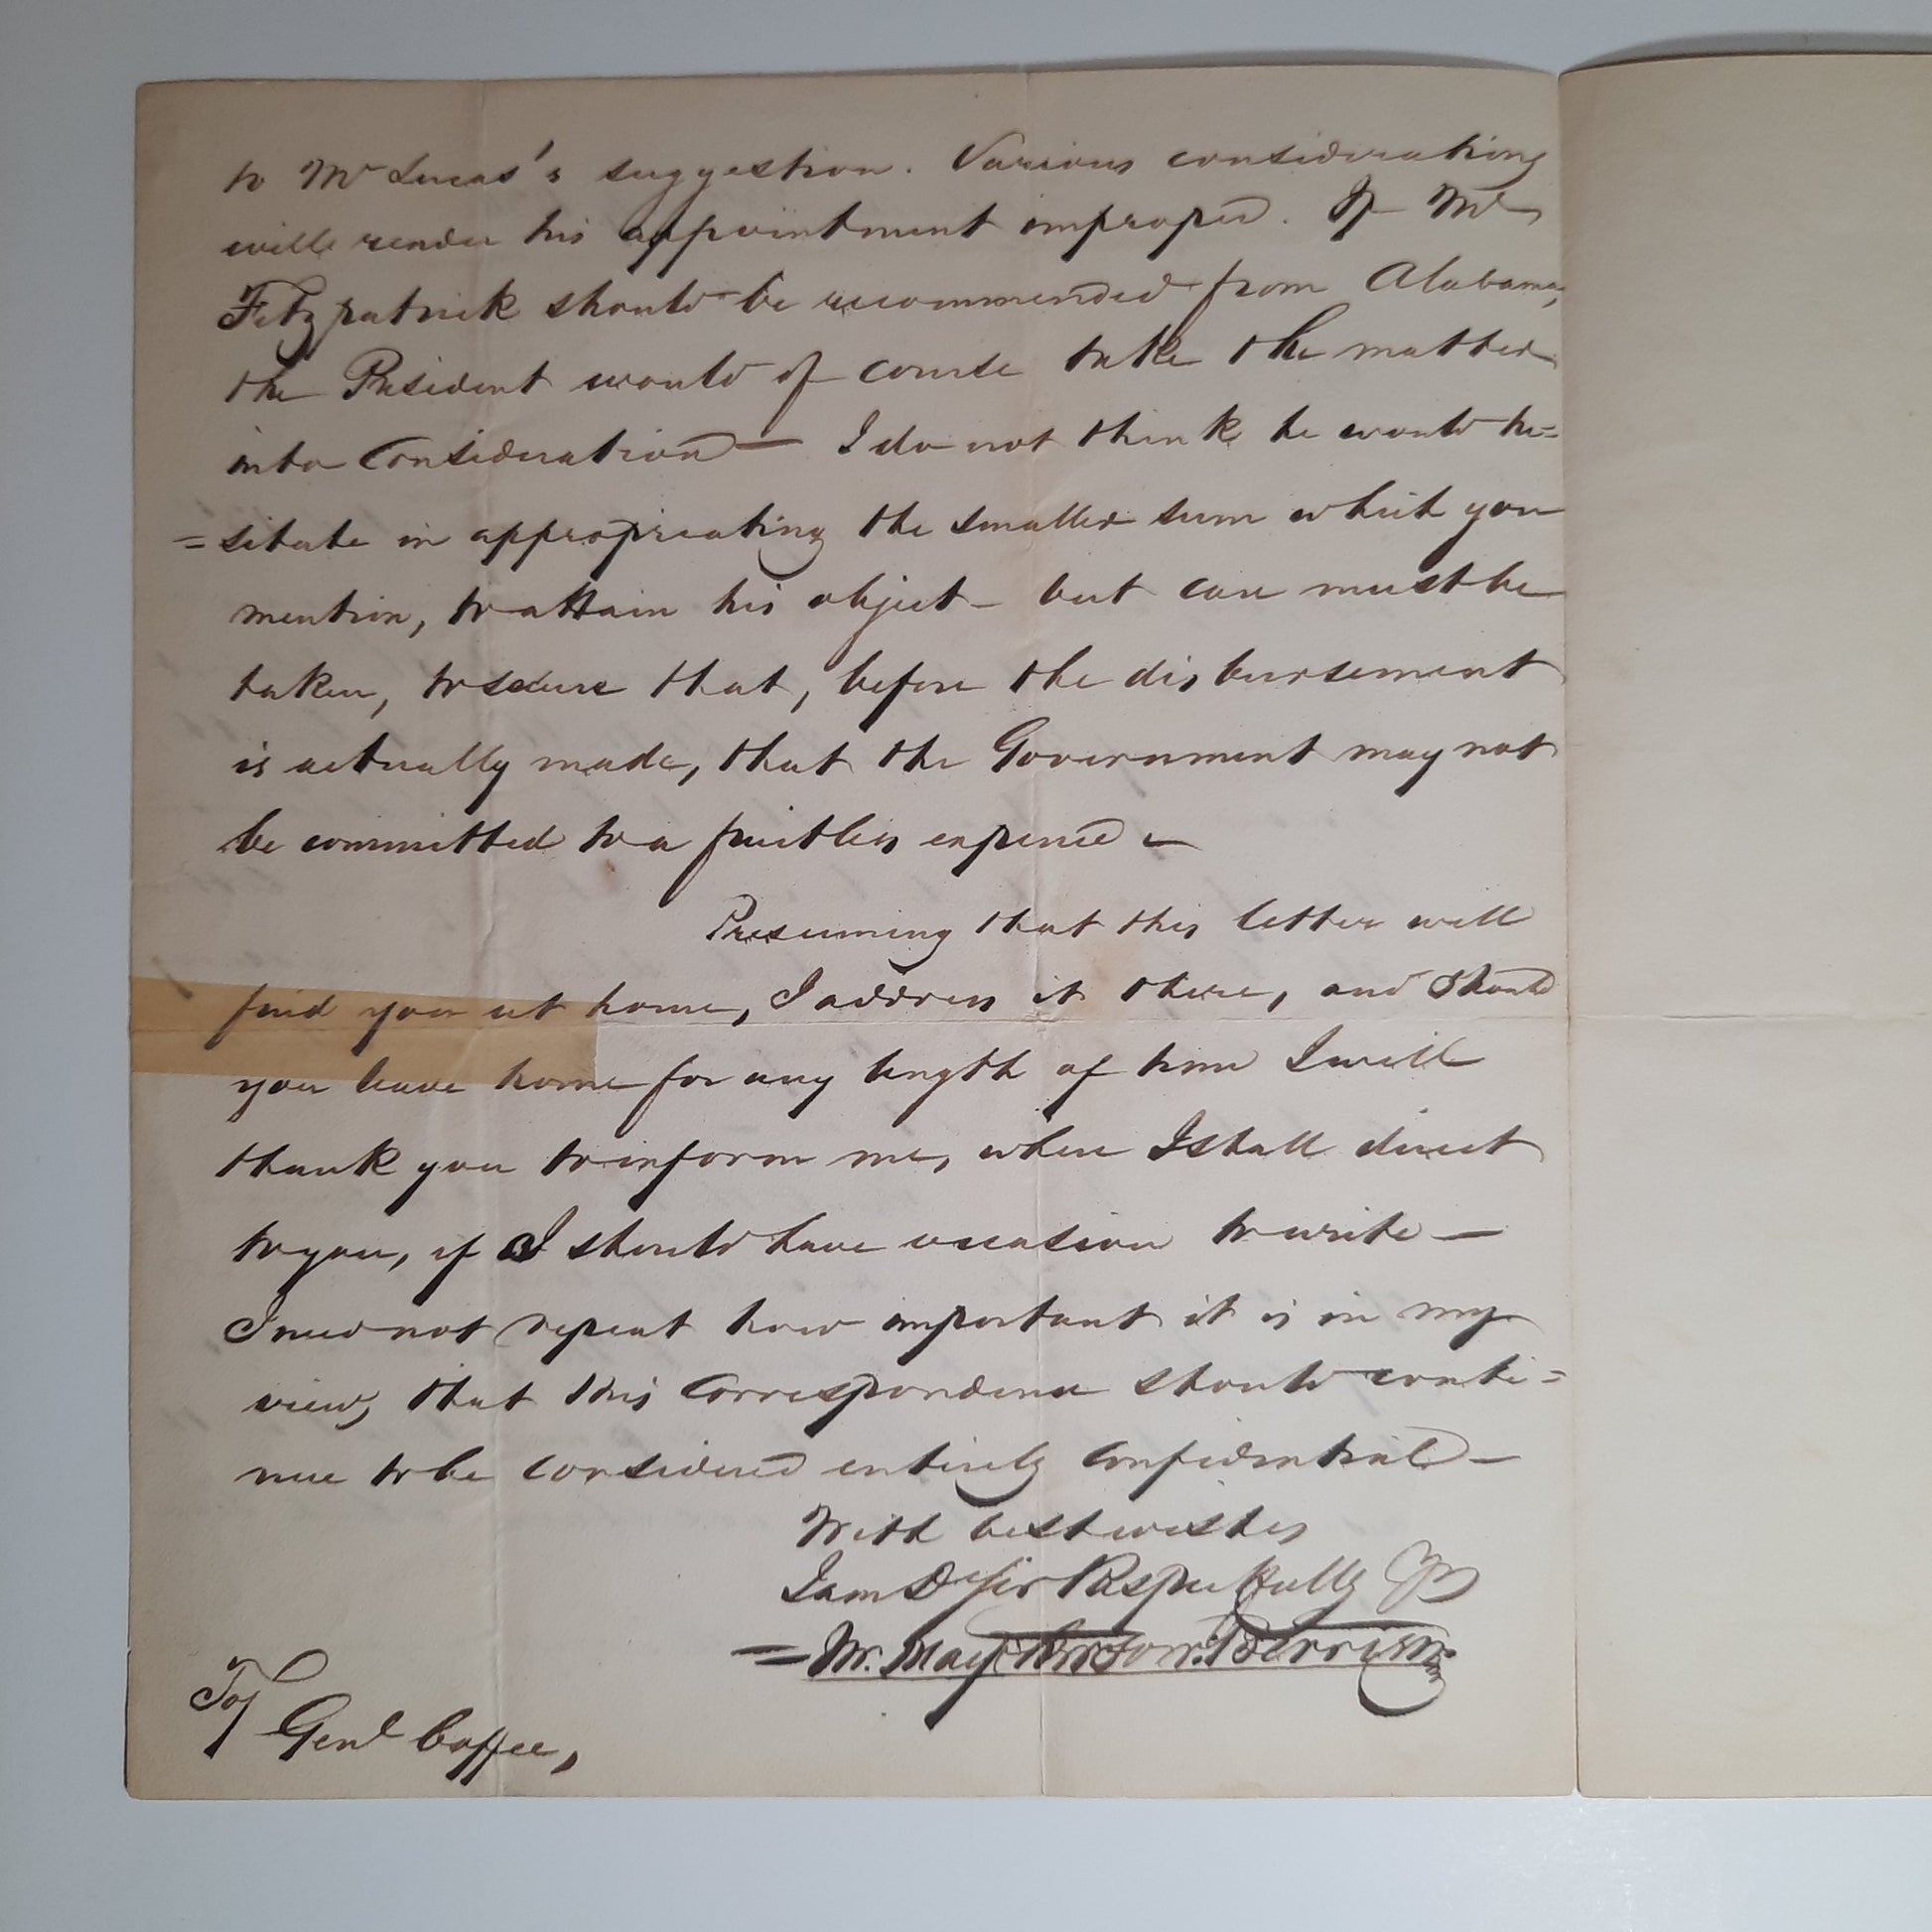 to Mr Lucas's suggestion. Various considerations
will render his appointment improper. If Mr
Fitzpatrick should be recommended from Alabama,
the President would of course take the matter
into Consideration — I do not think he would he=
=sitate in appropriating the smaller sum which you
mention, to attain his object — but care must be
taken, to secure that, before the disbursement
is actually made, that the Government may not
be committed to a fruitless expence —
Presuming that this letter will
find you at home, I address it there, and should
you leave home for any length of time I will
thank you to inform me, where I shall direct
to you, if I should have occasion to write —
I need not repeat how important it is in my
view, that this Correspondence should conti=
nue to be considered entirely Confidential —
With best wishes
I am D Sir Respectfully Yrs
Berrien
To/
Genl Coffee,